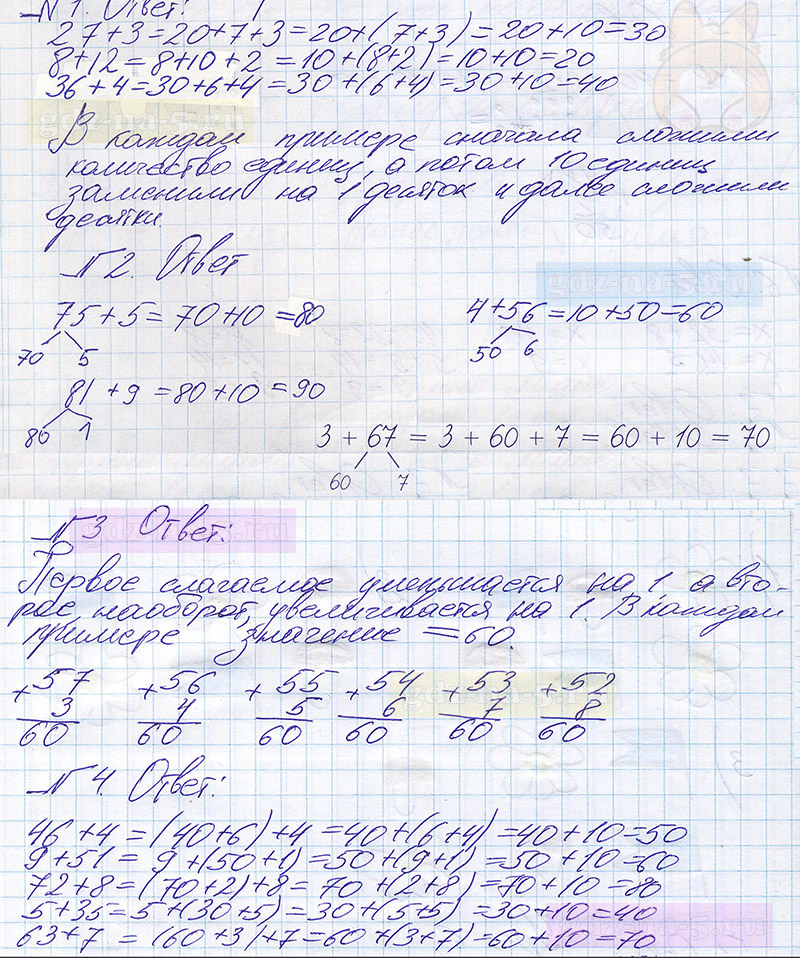 № 1. Ответ:
27+3=20+7+3=20+(7+3)=20+10=30
8+12=8+10+2=10+(8+2)=10+10=20
36+4=30+6+4=30+(6+4)=30+10=40
В каждом примере сначала сложили
количество единиц, а потом 10 единиц
заменили на 1 десяток и далее сложили
десятки.
№ 2. Ответ
75+5=70+10=80 4+56=10+50=60
70 5 50 6
81+9=80+10=90
80 1
3 + 67 = 3 + 60 + 7 = 60 + 10 = 70
60 7
№ 3 Ответ:
Первое слагаемое уменьшается на 1, а вто-
рое, наоборот, увеличивается на 1. В каждом
примере значение = 60.
+57 +56 +55 +54 +53 +52
3 4 5 6 7 8
60 60 60 60 60 60
№ 4. Ответ:
46+4=(40+6)+4=40+(6+4)=40+10=50
9+51=9+(50+1)=50+(9+1)=50+10=60
72+8=(70+2)+8=70+(2+8)=70+10=80
5+35=5+(30+5)=30+(5+5)=30+10=40
63+7=(60+3)+7=60+(3+7)=60+10=70